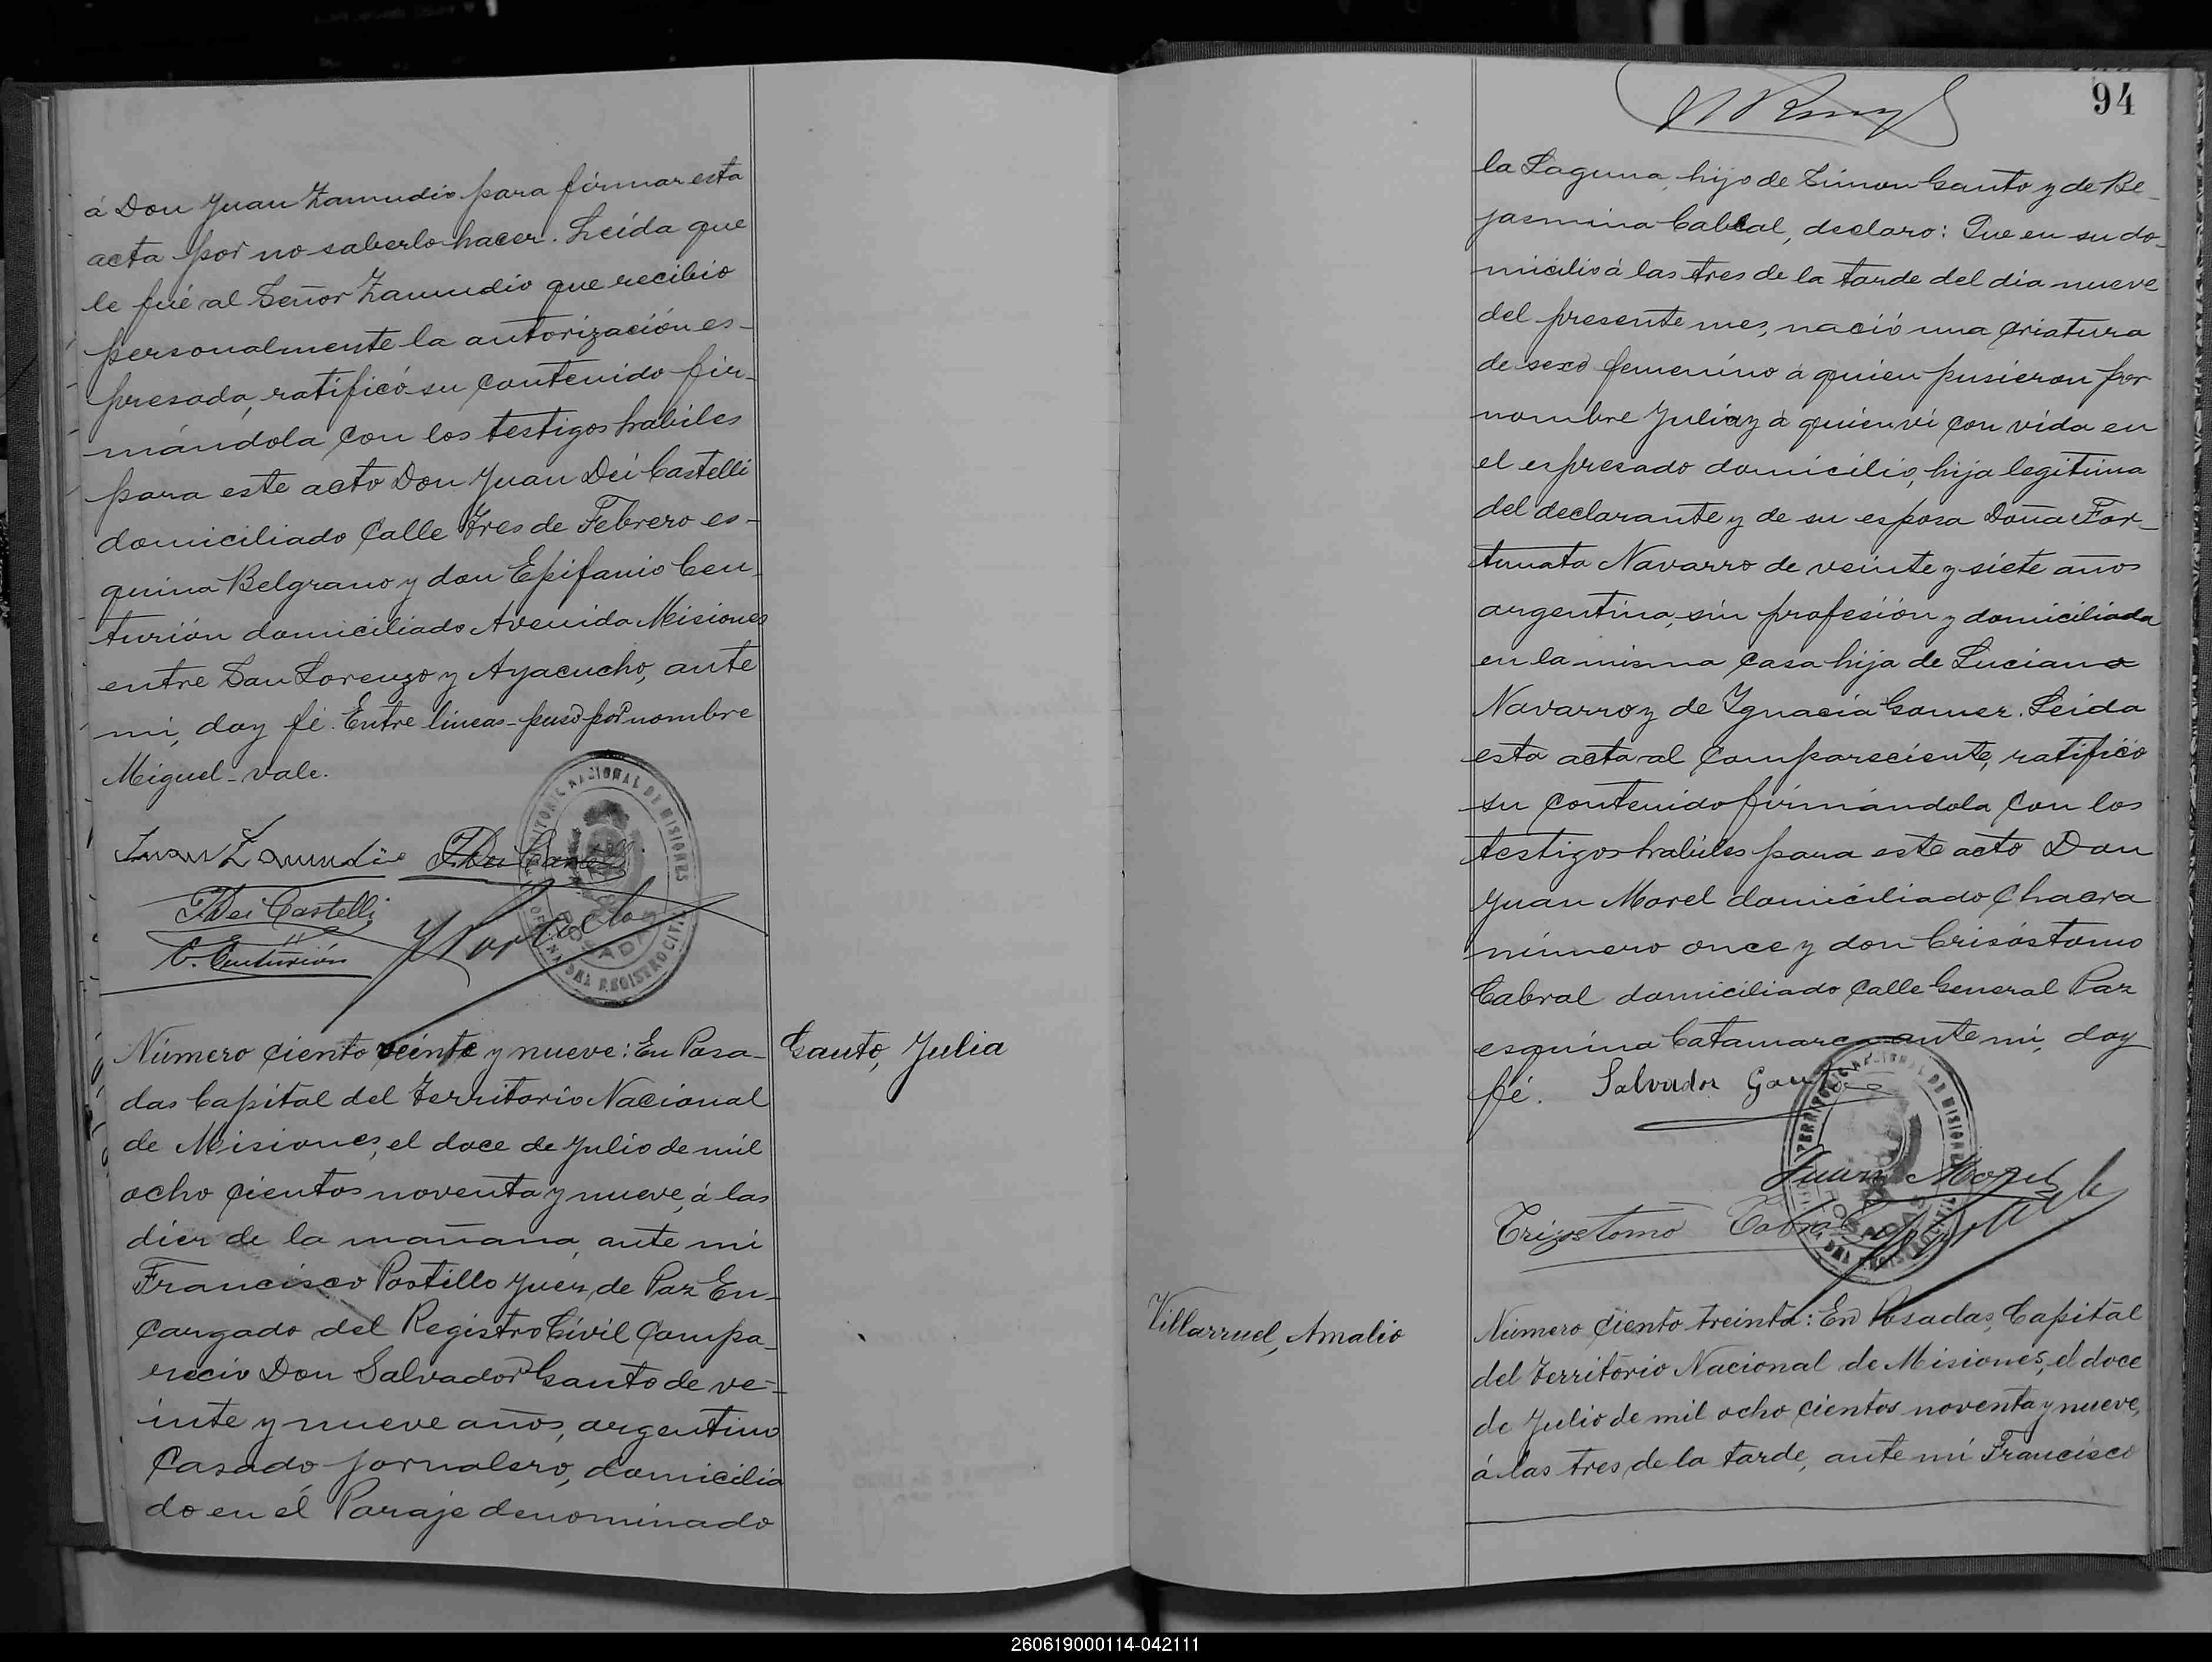 á Don Juan Zamudio para firmar esta
acta por no saberlo hacer. Leída que
le fué al Señor Zamudio que recibio
personalmente la autorización es-
presada, ratificó su contenido fir-
mándola con los testigos habiles
para este acto Don Juan Dei Castelli
domiciliado Calle Tres de Febrero es-
quina Belgrano y don Epifanio Cen-
turión domiciliado Avenida Misiones
entre San Lorenzo y Ayacucho, ante
mi, doy fé. Entre lineas-puso por nombre
Miguel-vale.
Juan Zamudio
J. Dei Castelli
E. Centurión
TERRITORIO NACIONAL DE MISIONES
POSADAS
OFICINA DEL REGISTRO CIVIL
Número ciento veinte y nueve: En Posa-
das Capital del Territorio Nacional
de Misiones, el doce de Julio de mil
ocho cientos noventa y nueve, á las
diez de la mañana, ante mi
Francisco Postillo Juez de Paz En-
cargado del Registro Civil Compa-
recio Don Salvador Gauto de ve-
inte y nueve años, argentino
Casado, jornalero, domicilia
do en el Paraje denominado
Gauto, Julia
94
la Laguna, hijo de Simon Gauto y de Be-
jasmina Cabral, declaro: Que en su do-
micilio á las tres de la tarde del dia nueve
del presente mes, nació una criatura
de sexo femenino á quien pusieron por
nombre Julia y á quien vi con vida en
el espresado domicilio, hija legitima
del declarante y de su esposa Doña For-
tunata Navarro de veinte y siete años
argentina, sin profesión y domiciliada
en la misma casa hija de Luciano
Navarro y de Ygnacia Gomez. Leida
esta acta al Compareciente, ratificó
su contenido firmándola con los
testigos habiles para este acto Don
Juan Morel domiciliado Chacra
número once y don Crisóstomo
Cabral domiciliado Calle General Paz
esquina Catamarca ante mi, doy
fé.
Salvador Gauto
Juan Morel
Crizostomo Cabral
Villarruel, Amalio
Número ciento treinta: En Posadas, Capital
del Territorio Nacional de Misiones, el doce
de Julio de mil ocho cientos noventa y nueve,
á las tres de la tarde, ante mi Francisco
260619000114-042111